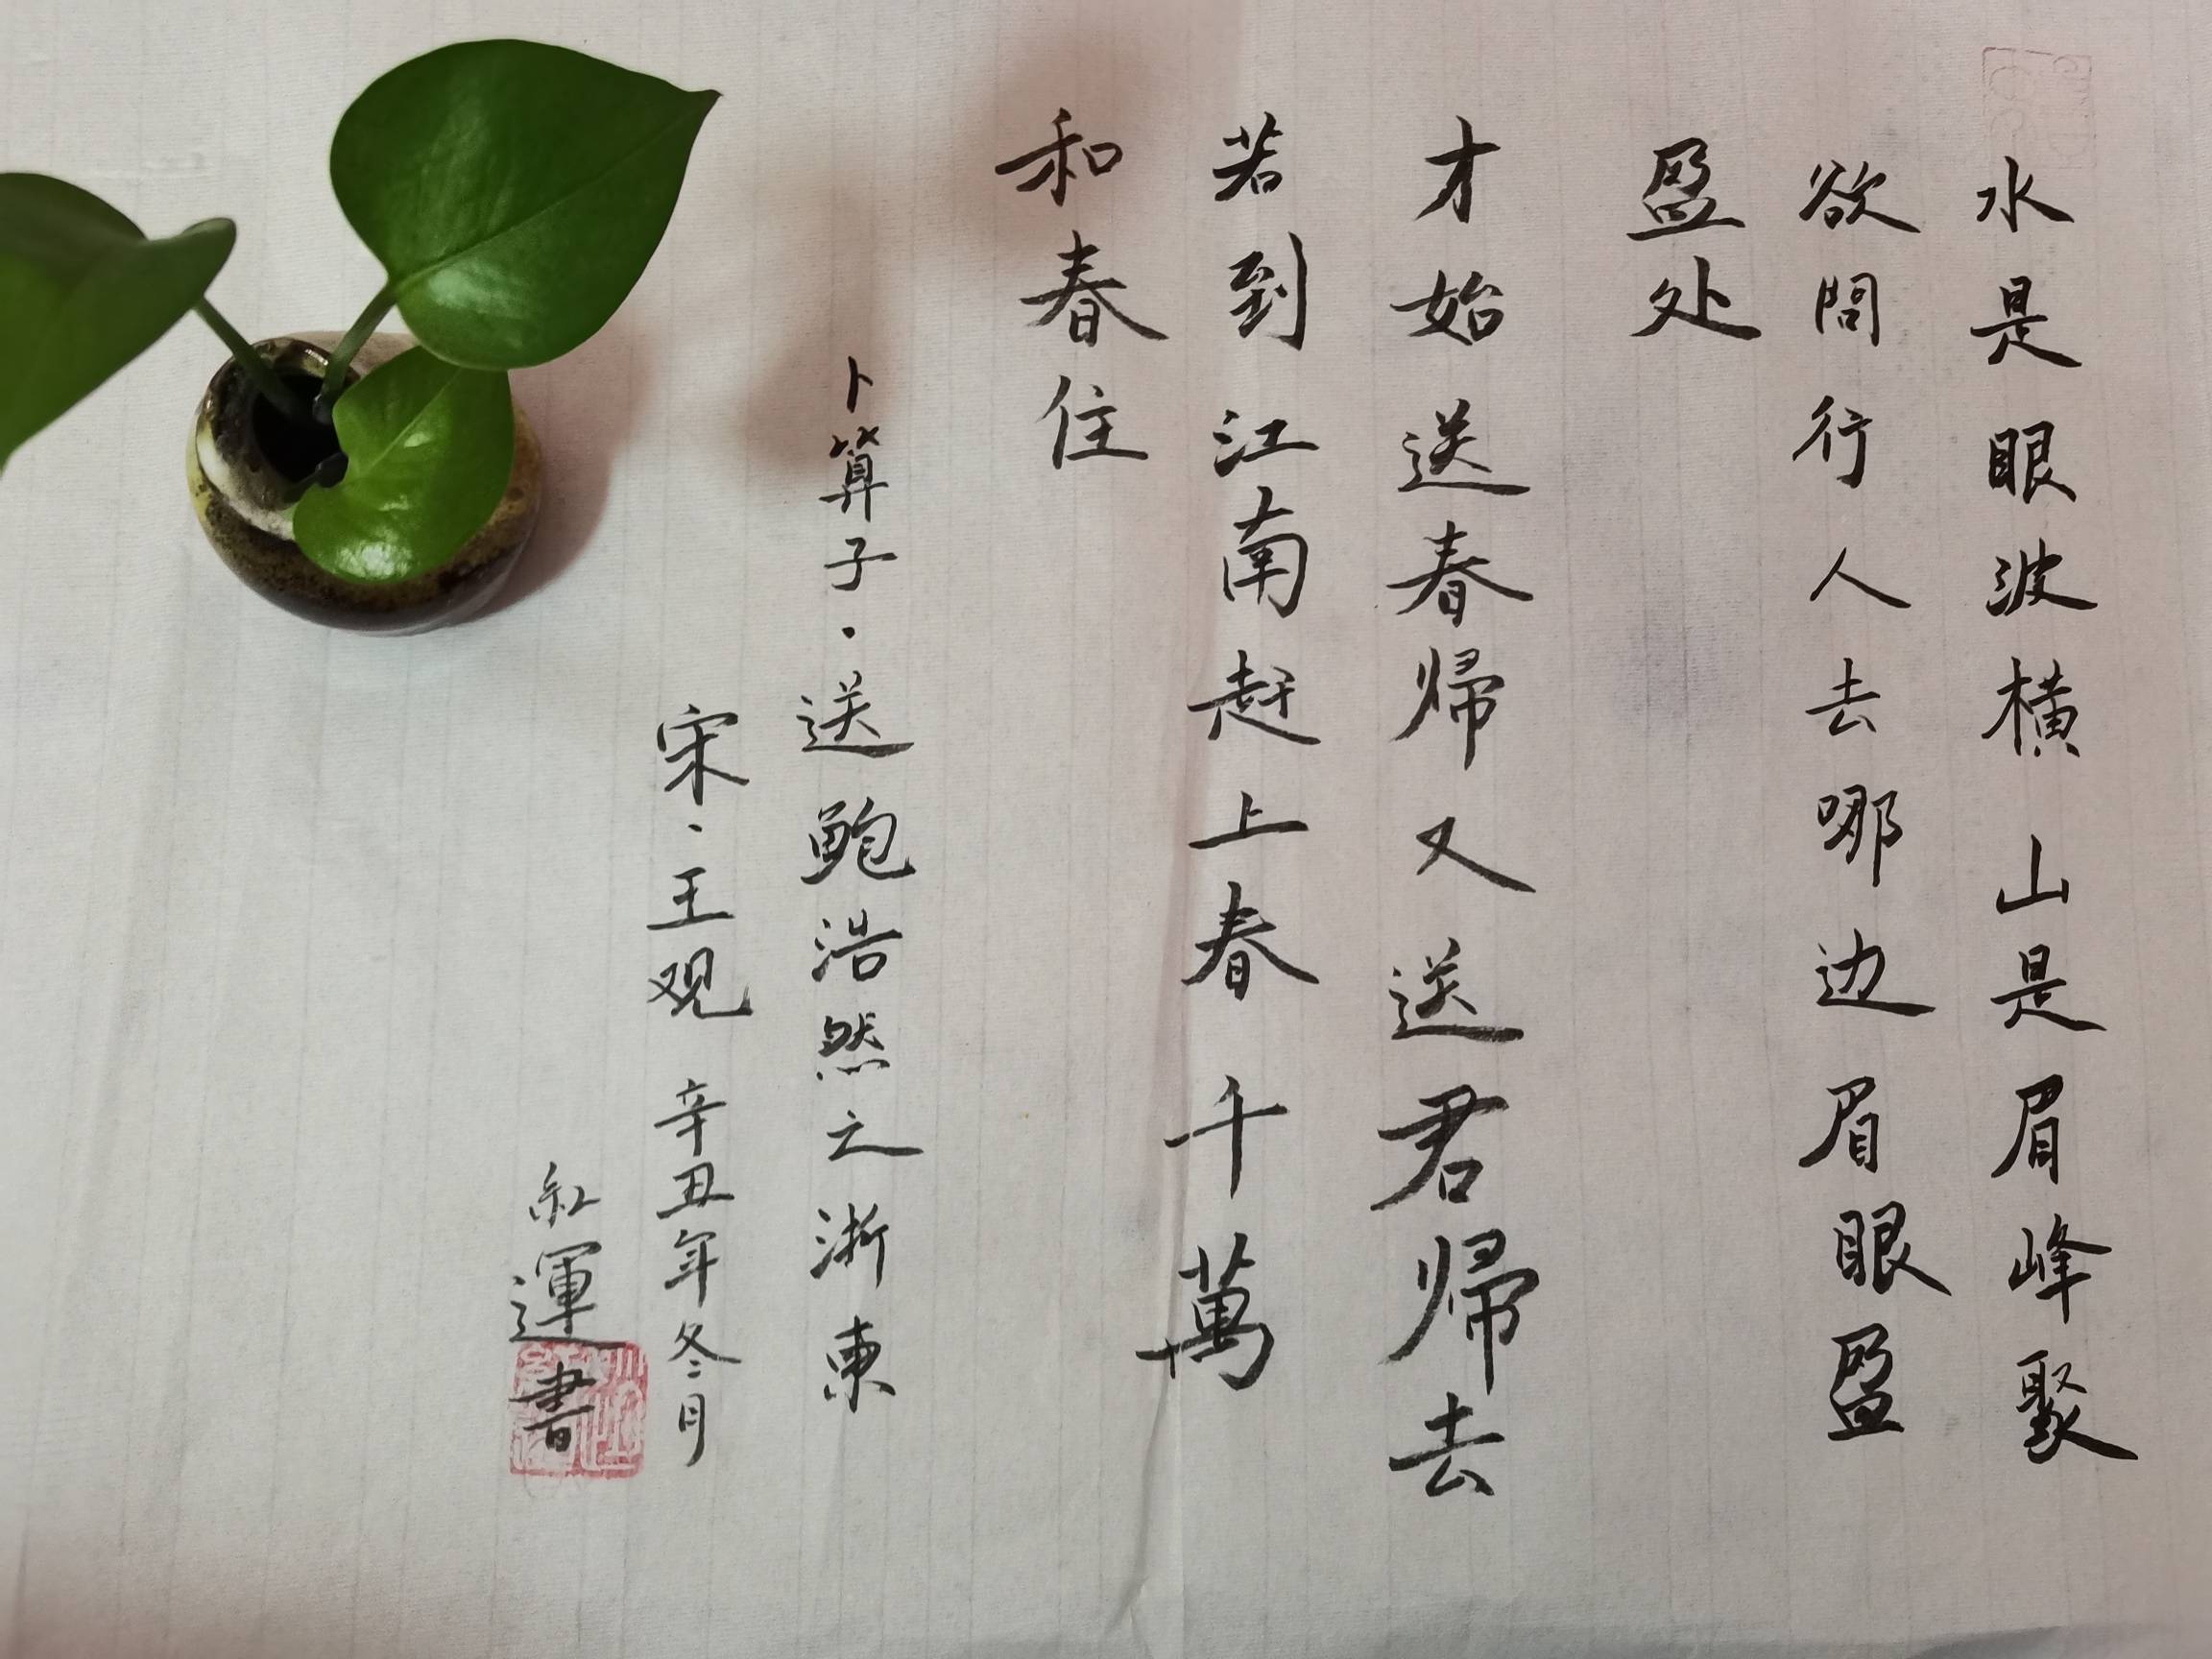 水是眼波横山是眉峰聚
欲問行人去哪边眉眼盈
盈处
才始送春歸又送君歸去
若到江南赶上春千萬
和春住
卜算子·送鲍浩然之浙東
宋·王观 辛丑年冬月
紅運書